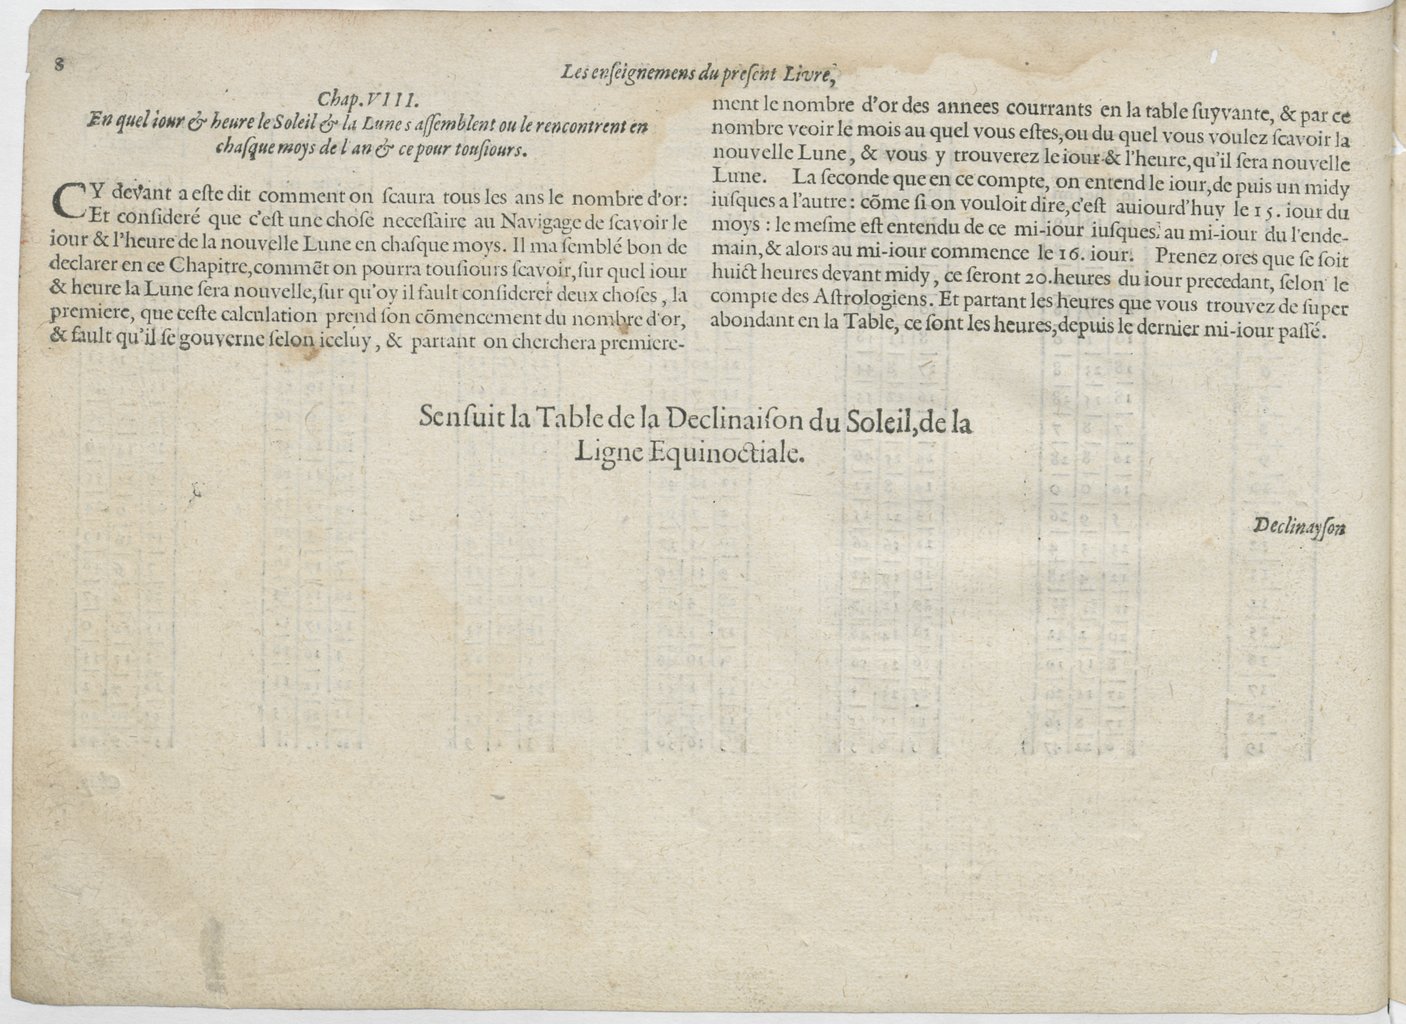 8
Les enſeignemens du preſent Livre,
Chap. VIII.
En quel iour & heure le Soleil & la Lune s aſſemblent ou le rencontrent en
chaſque moys de l an & ce pour touſiours.
CY devant a eſte dit comment on ſcaura tous les ans le nombre d'or:
Et conſideré que c'eſt une choſe neceſſaire au Navigage de ſcavoir le
iour & l'heure de la nouvelle Lune en chaſque moys. Il ma ſemblé bon de
declarer en ce Chapitre, commẽt on pourra touſiours ſcavoir, ſur quel iour
& heure la Lune ſera nouvelle, ſur qu'oy il fault conſiderer deux choſes, la
premiere, que ceſte calculation prend ſon cõmencement du nombre d'or,
& fault qu'il ſe gouverne ſelon iceluy, & partant on cherchera premiere-
ment le nombre d'or des annees courrants en la table ſuyvante, & par ce
nombre veoir le mois au quel vous eſtes, ou du quel vous voulez ſcavoir la
nouvelle Lune, & vous y trouverez le iour & l'heure, qu'il ſera nouvelle
Lune. La ſeconde que en ce compte, on entend le iour, de puis un midy
iuſques a l'autre: cõme ſi on vouloit dire, c'eſt auiourd'huy le 15. iour du
moys: le meſme eſt entendu de ce mi-iour iuſques au mi-iour du l'ende-
main, & alors au mi-iour commence le 16. iour. Prenez ores que ſe ſoit
huict heures devant midy, ce ſeront 20. heures du iour precedant, ſelon le
compte des Aſtrologiens. Et partant les heures que vous trouvez de ſuper
abondant en la Table, ce ſont les heures, depuis le dernier mi-iour paſſé.
Senſuit la Table de la Declinaiſon du Soleil, de la
Ligne Equinoctiale.
Declinayſon